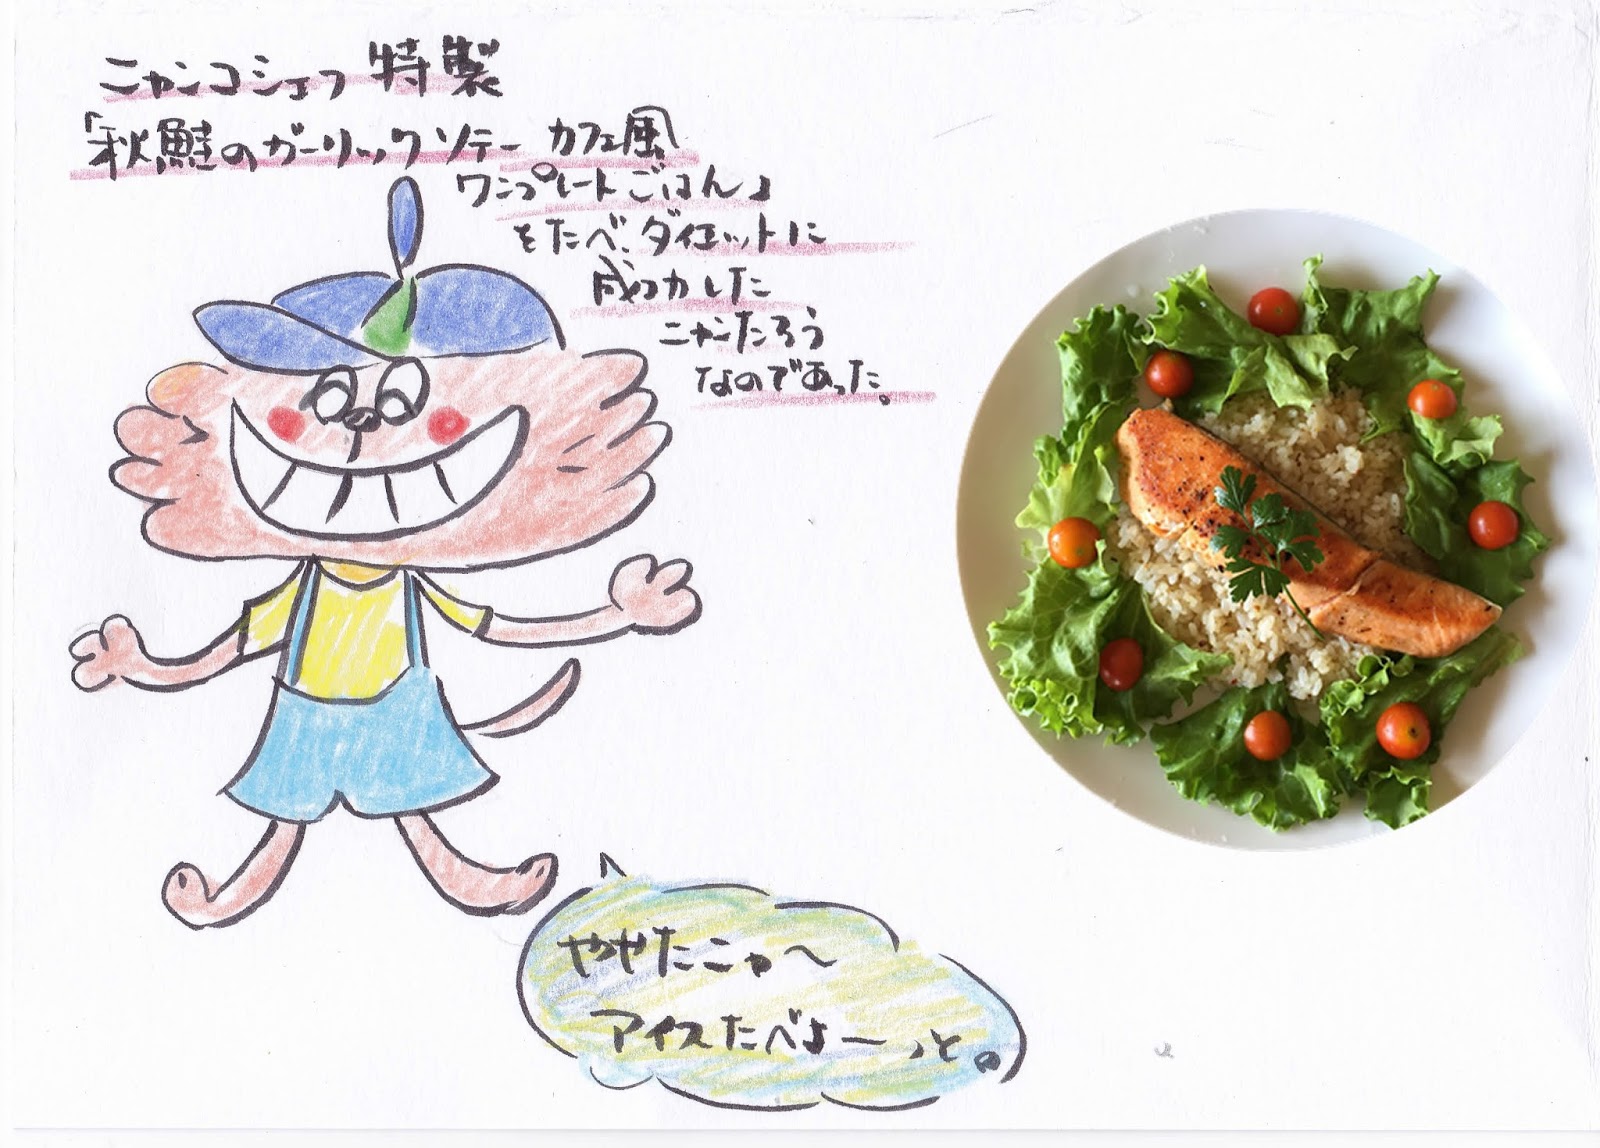 ニャンコシェフ特製
「秋鮭のガーリックソテー カフェ風
ワンプレートごはん」
をたべ、ダイエットに
成功した
ニャンたろう
なのであった。
やせたニャ〜
アイスたべよーっと。